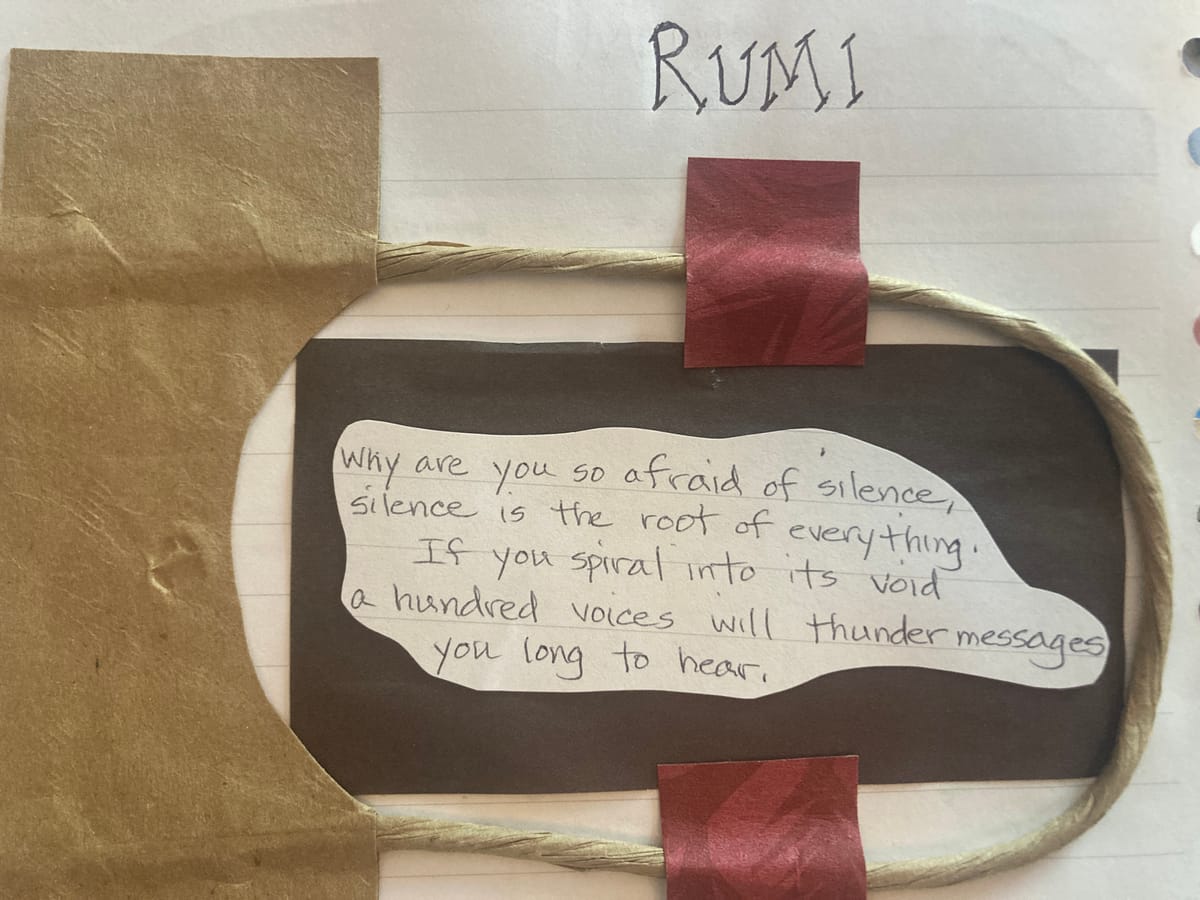 RUMI
Why are you so afraid of silence,
silence is the root of everything.
If you spiral into its void
a hundred voices will thunder messages
you long to hear.